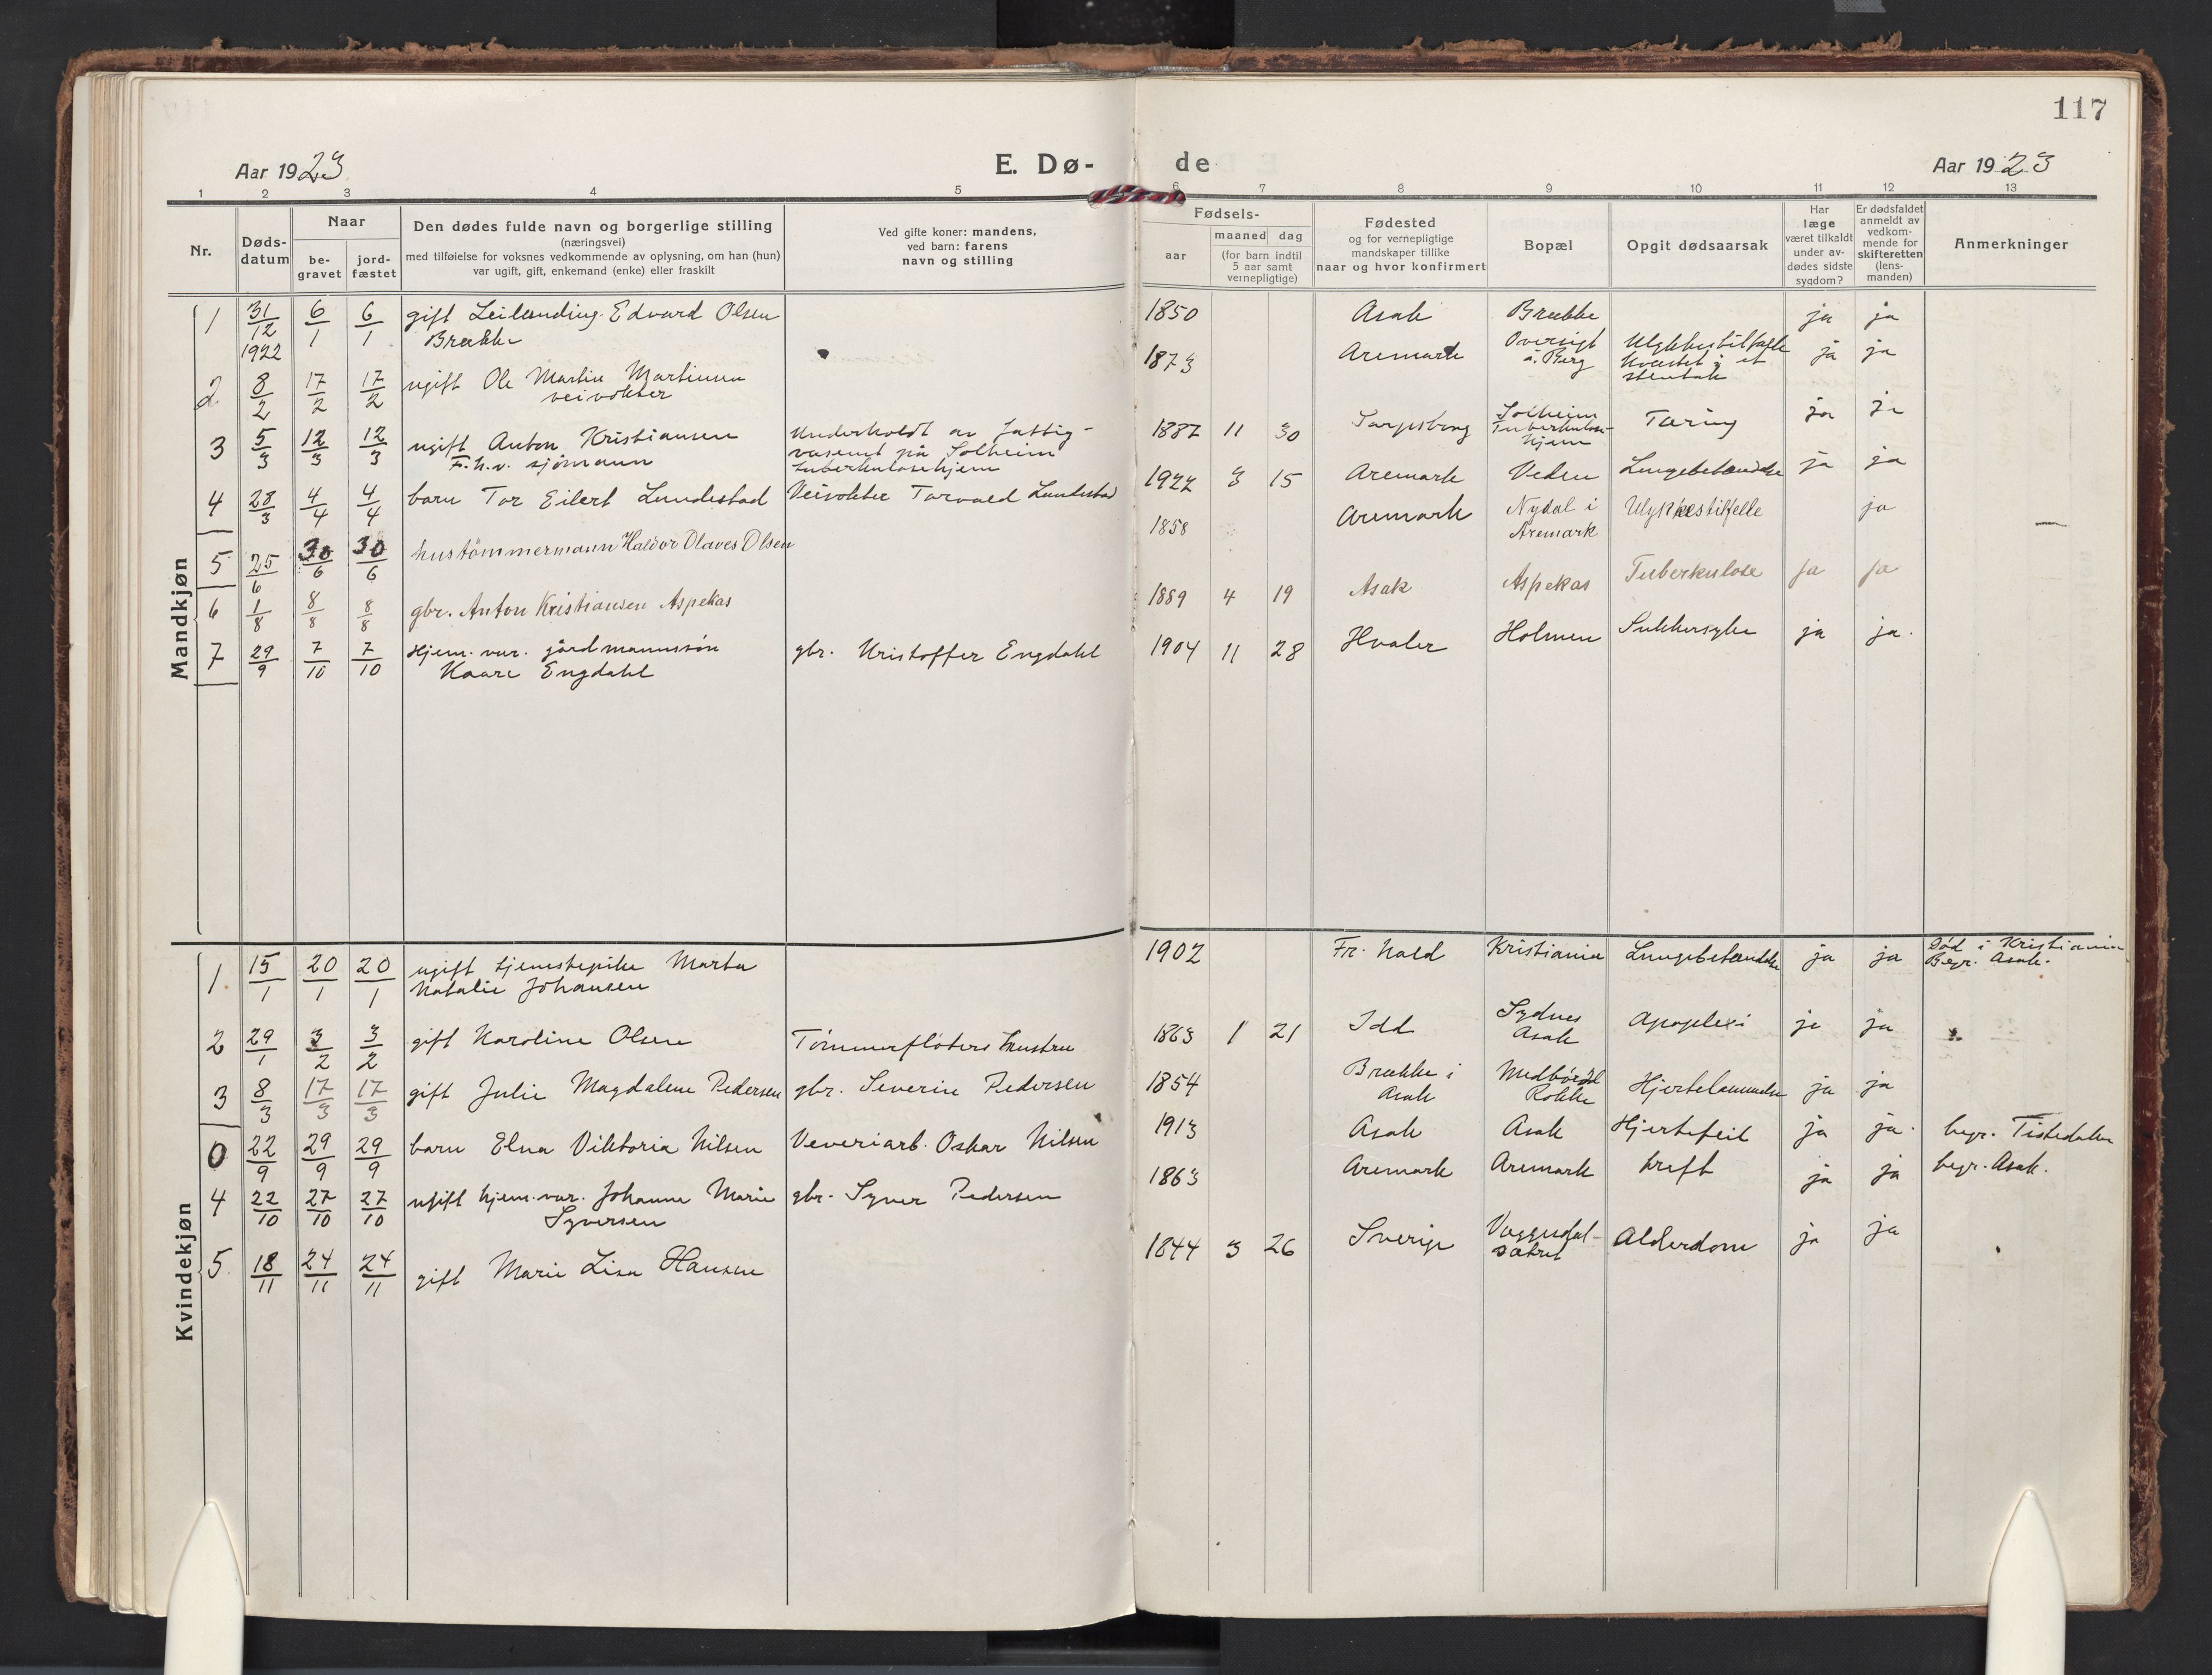 117
Aar 1923
E. Dø-
de
Aar 1923
1 2 3 4 5 6 7 8 9 10 11 12 13
Nr.
Døds-
datum
Naar
be-
gravet
jord-
fæstet
Den dødes fulde navn og borgerlige stilling
(næringsvei)
med tilføielse for voksnes vedkommende av oplysning, om han (hun)
var ugift, gift, enkemand (enke) eller fraskilt
Ved gifte koner: mandens,
ved barn: farens
navn og stilling
Fødsels-
aar
maaned dag
(for barn indtil
5 aar samt
vernepligtige)
Fødested
og for vernepligtige
mandskaper tillike
naar og hvor konfirmert
Bopæl
Opgit dødsaarsak
Har
læge
været tilkaldt
under av-
dødes sidste
sygdom?
Er dødsfaldet
anmeldt av
vedkom-
mende for
skifteretten
(lens-
manden)
Anmerkninger
Mandkjøn
1 31/12 1922 6/1 6/1 gift Leilending Edvard Olsen
Brække
1850 Asak Brække ja ja
2 8/2 17/2 17/2 ugift Ole Martin Martinsen
veivokter
1873 Aremark Oversigt
i Berg
Ulykkestilfælle
stentak
ja ja
3 5/3 12/3 12/3 ugift Anton Kristiansen
F.h.v. sjømann
Underholdt av fattig-
vasenet på Solheim
tuberkulosehjem
1887 11 30 Sarpsborg Solheim
Tuberkulose-
hjem
Tæring ja ja
4 28/3 4/4 4/4 barn Tor Eilert Lundestad Veivokter Torvald Lundestad
1922 3 15 Aremark Veden Lungebetændelse ja ja
5 25/6 30/6 30/6 hustömmermann Haldor Olaves Olsen
1858 Aremark Nydal i
Aremark
Ulykkestilfelle ja —
6 1/8 8/8 8/8 gbr. Anton Kristiansen Aspekas
1889 4 19 Asak Aspekas Tuberkulose ja ja
7 29/9 7/10 7/10 Hjem. vær. gårdmannssøn
Kaare Engdahl
gbr. Kristoffer Engdahl
1904 11 28 Hvaler Holmen Sukkersyke ja ja.
Kvindekjøn
1. 15/1 20/1 20/1 ugift tjenestepike Marta
Natalie Johansen
1902 Fr. hald Kristiania Lungebetændelse ja ja Død i Kristiania
Begr. Asak.
2 29/1 3/2 3/2 gift Karoline Olsen Tømmerfløters hustru
1863 1 21 Idd Sydnes
Asak
Apoplexi ja ja
3 8/3 17/3 17/3 gift Julie Magdalene Pedersen gbr. Severin Pedersen
1854 Brække i
Asak
Rokke
Hjertelammelse ja ja
0 22/9 29/9 29/9 barn Elna Viktoria Nilsen Veveriarb. Oskar Nilsen
1913 Asak Asak Hjertefeil ja ja. begr. Tistedalen
4 22/10 27/10 27/10 ugift hjem. vær. Johanne Marie
Syversen
gbr. Syver Pedersen
1863 Aremark Aremark kreft ja ja begr. Asak.
5 18/11 24/11 24/11 gift Marie Lisa Hansen
1844 3 26 Sverige Alderdom ja ja